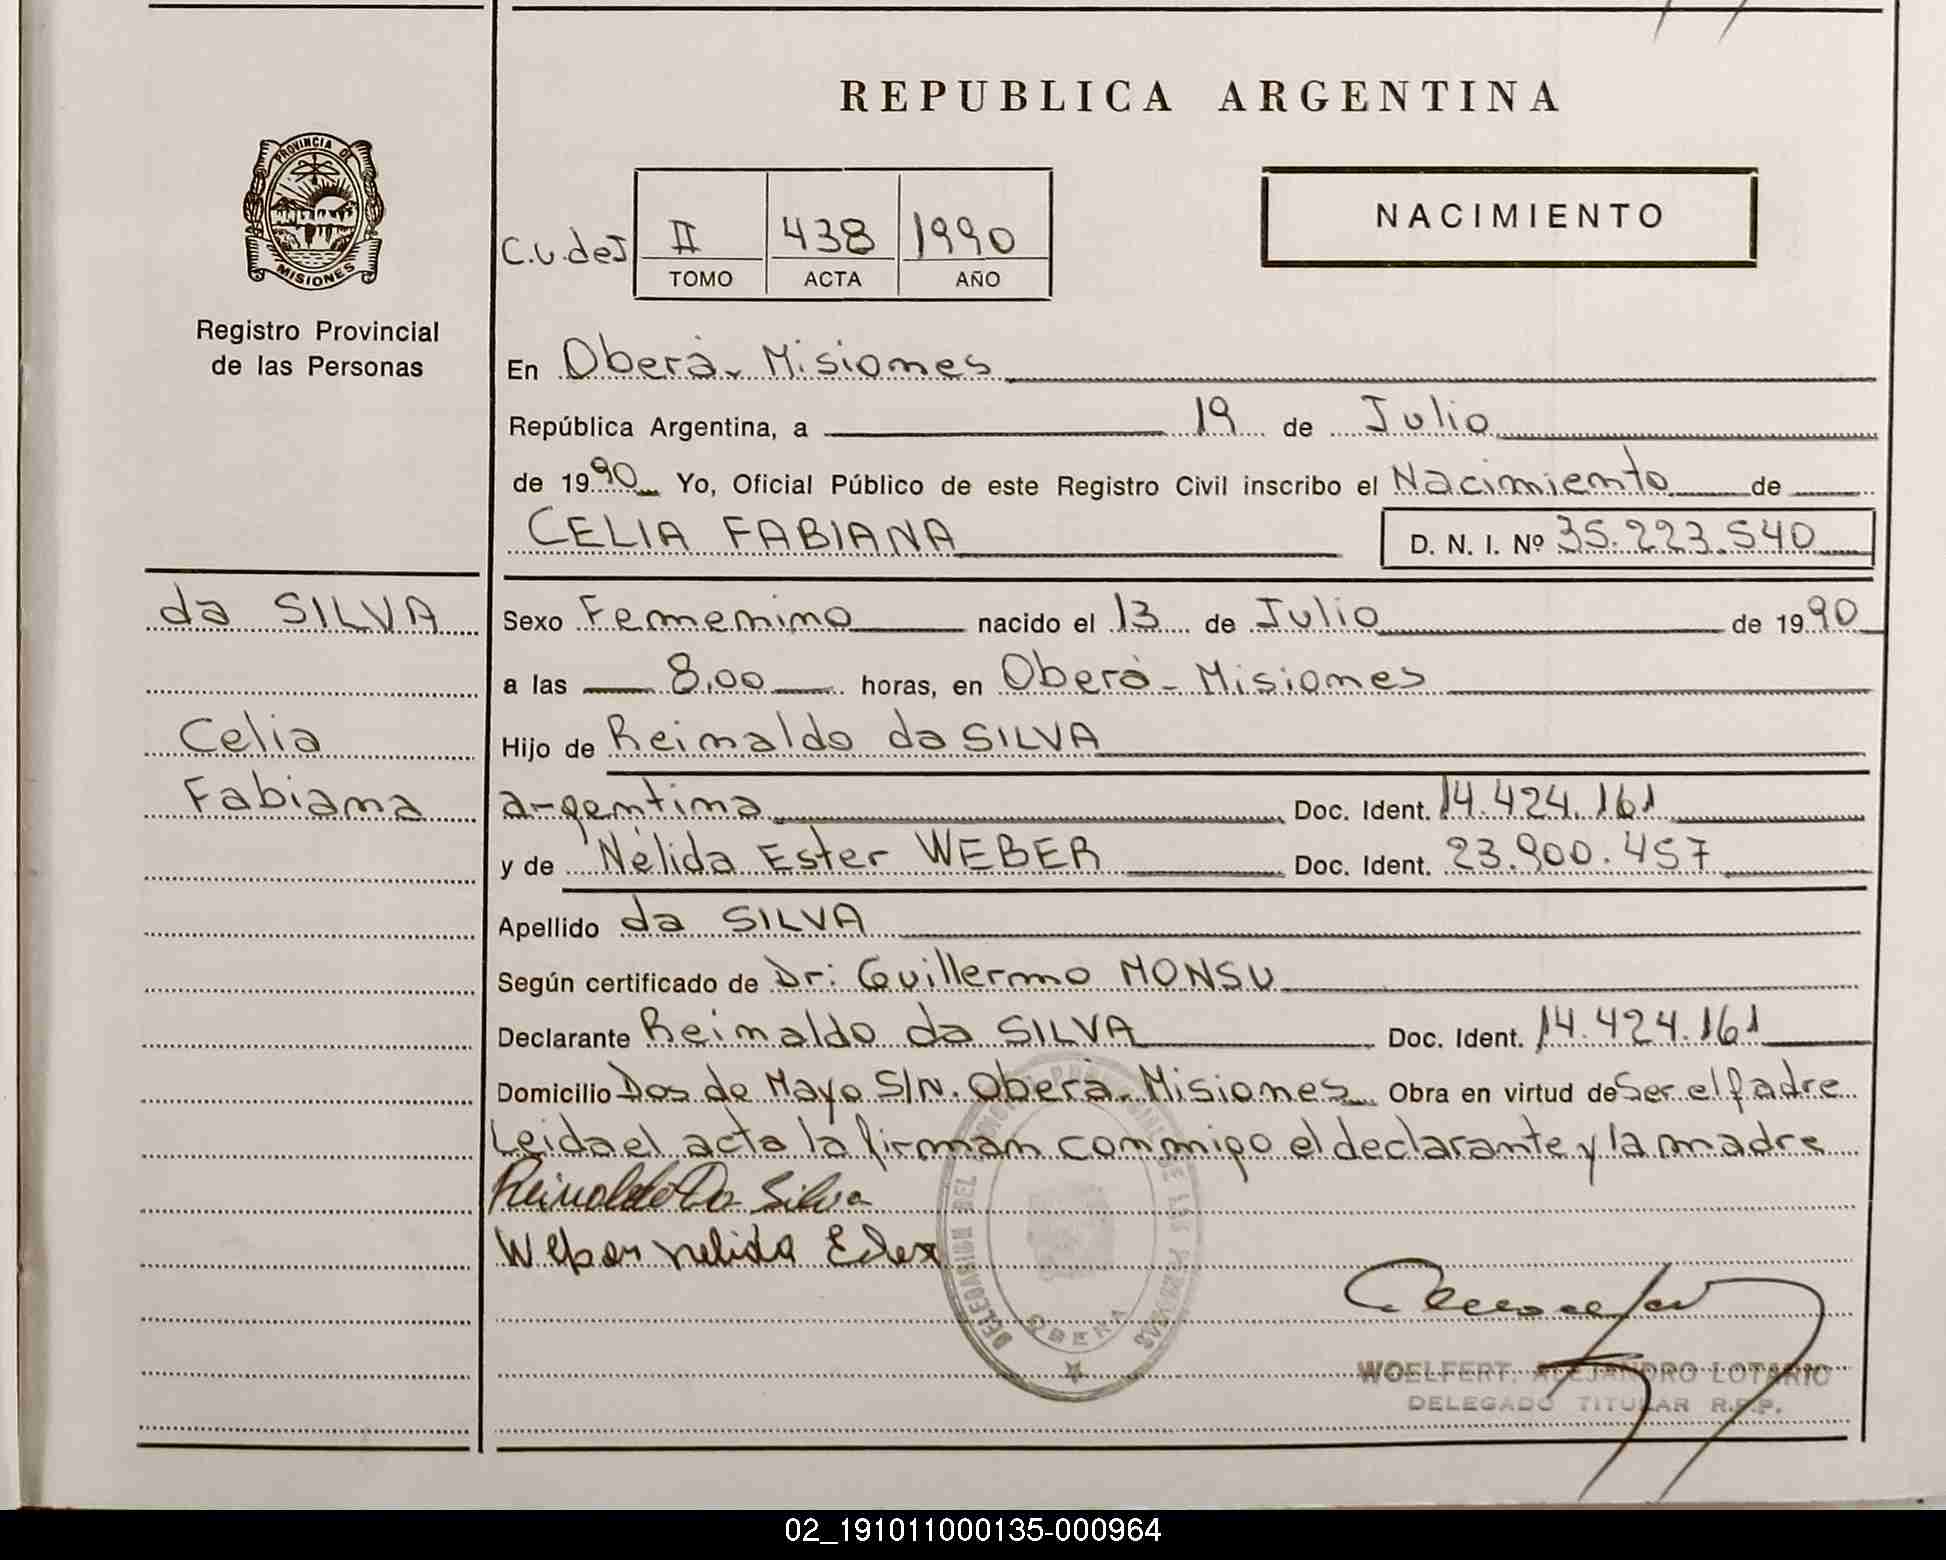 REPUBLICA ARGENTINA
PROVINCIA DE
MISIONES
Registro Provincial
de las Personas
C.U. de I
II 438 1990
TOMO ACTA AÑO
NACIMIENTO
En Oberá - Misiones
República Argentina, a 19 de Julio
de 1990 Yo, Oficial Público de este Registro Civil inscribo el Nacimiento de
CELIA FABIANA D. N. I. Nº 35.223.540
da SILVA
Celia
Fabiana
Sexo Femenino nacido el 13 de Julio de 1990
a las 8,00 horas, en Oberá - Misiones
Hijo de Reinaldo da SILVA
argentina Doc. Ident. 14.424.161
y de Nélida Ester WEBER Doc. Ident. 23.900.457
Apellido da SILVA
Según certificado de Dr: Guillermo MONSU
Declarante Reinaldo da SILVA Doc. Ident. 14.424.161
Domicilio Dos de Mayo S/N. Oberá - Misiones Obra en virtud de Ser el Padre
Leida el acta la firman conmigo el declarante y la madre
Reinaldo Da Silva
Weber nelida Ester
DELEGACION DEL DE LAS PERSONAS
OBERA
WOELFERT, ALEJANDRO LOTARIO
DELEGADO TITULAR R.P.P.
02_191011000135-000964